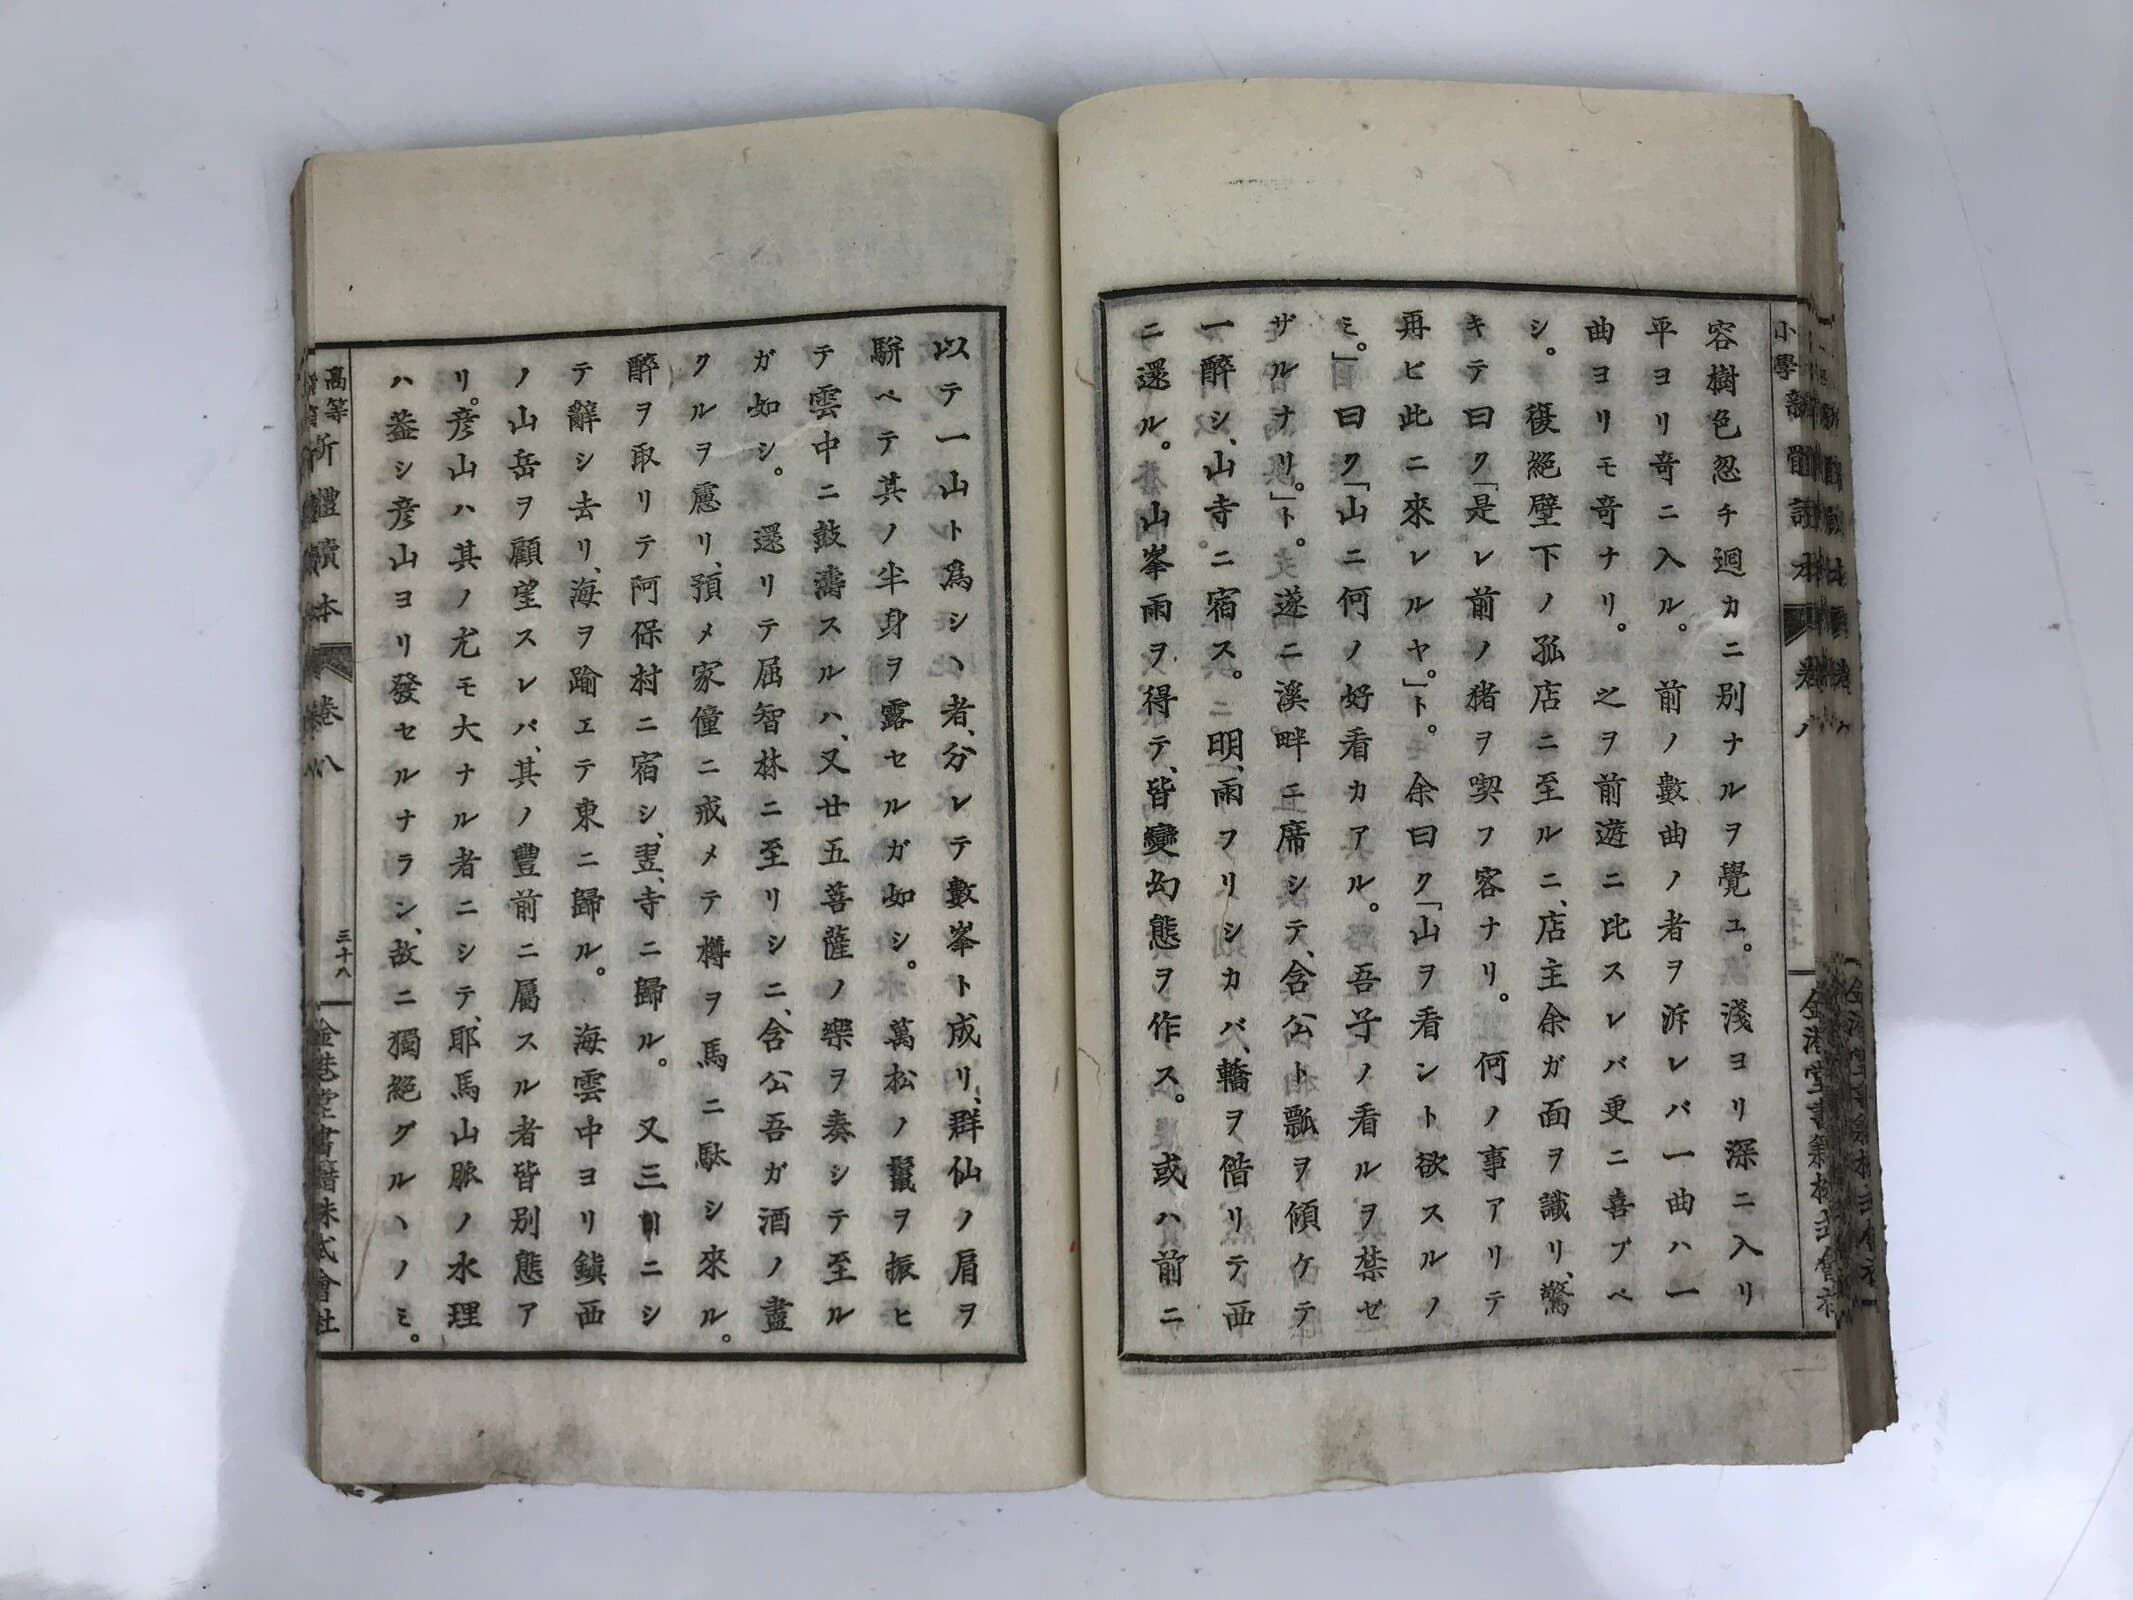 小學新體讀本
卷八
容樹色忽チ迥カニ別ナルヲ覺ユ。淺ヨリ深ニ入リ
平ヨリ奇ニ入ル。前ノ數曲ノ者ヲ泝レバ一曲ハ一
曲ヨリモ奇ナリ。之ヲ前遊ニ比スレバ更ニ喜ブベ
シ。復絕壁下ノ孤店ニ至ルニ、店主余ガ面ヲ識リ、驚
キテ曰ク「是レ前ノ猪ヲ喫フ客ナリ。何ノ事アリテ
再ヒ此ニ來レルヤ。」ト。余曰ク「山ヲ看ント欲スルノ
ミ。」曰ク「山ニ何ノ好看カアル。吾子ノ看ルヲ禁ゼ
ザルナリ。」ト。遂ニ溪畔ニ席シテ、含公ト瓢ヲ傾ケテ
一醉シ、山寺ニ宿ス。明、雨フリシカバ、轎ヲ借リテ西
ニ還ル。山峯雨ヲ得テ、皆變幻態ヲ作ス。或ハ前ニ
以テ一山ト爲シヽ者、分レテ數峯ト成リ、群仙ノ肩ヲ
駢ベテ其ノ半身ヲ露セルガ如シ。萬松ノ鬣ヲ振ヒ
テ雲中ニ鼓濤スルハ、又廿五菩薩ノ樂ヲ奏シテ至ル
ガ如シ。還リテ屈智林ニ至リシニ、含公吾ガ酒ノ盡
クルヲ慮リ、預メ家僮ニ戒メテ樽ヲ馬ニ駄シ來ル。
醉ヲ取リテ阿保村ニ宿シ、翌、寺ニ歸ル。又三日ニシ
テ辭シ去リ、海ヲ踰エテ東ニ歸ル。海雲中ヨリ鎭西
ノ山岳ヲ顧望スレバ、其ノ豐前ニ屬スル者皆別態ア
リ。彦山ハ其ノ尤モ大ナル者ニシテ、耶馬山脈ノ水理
ハ葢シ彦山ヨリ發セルナラン、故ニ獨絕グルヽノミ。
高等
新體讀本
卷八
三十八
金港堂書籍株式會社